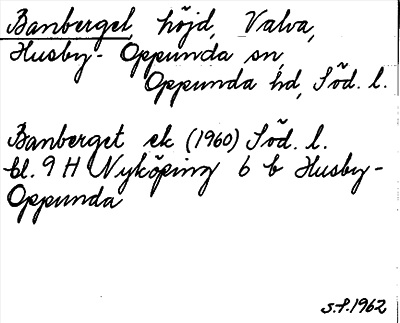 Banberget, höjd, Valva,
Husby-Oppunda sn,
Oppunda hd, Söd. l.
Banberget ek (1960) Söd. l.
bl. 9 H Nyköping 6 b Husby-
Oppunda
s.f. 1962